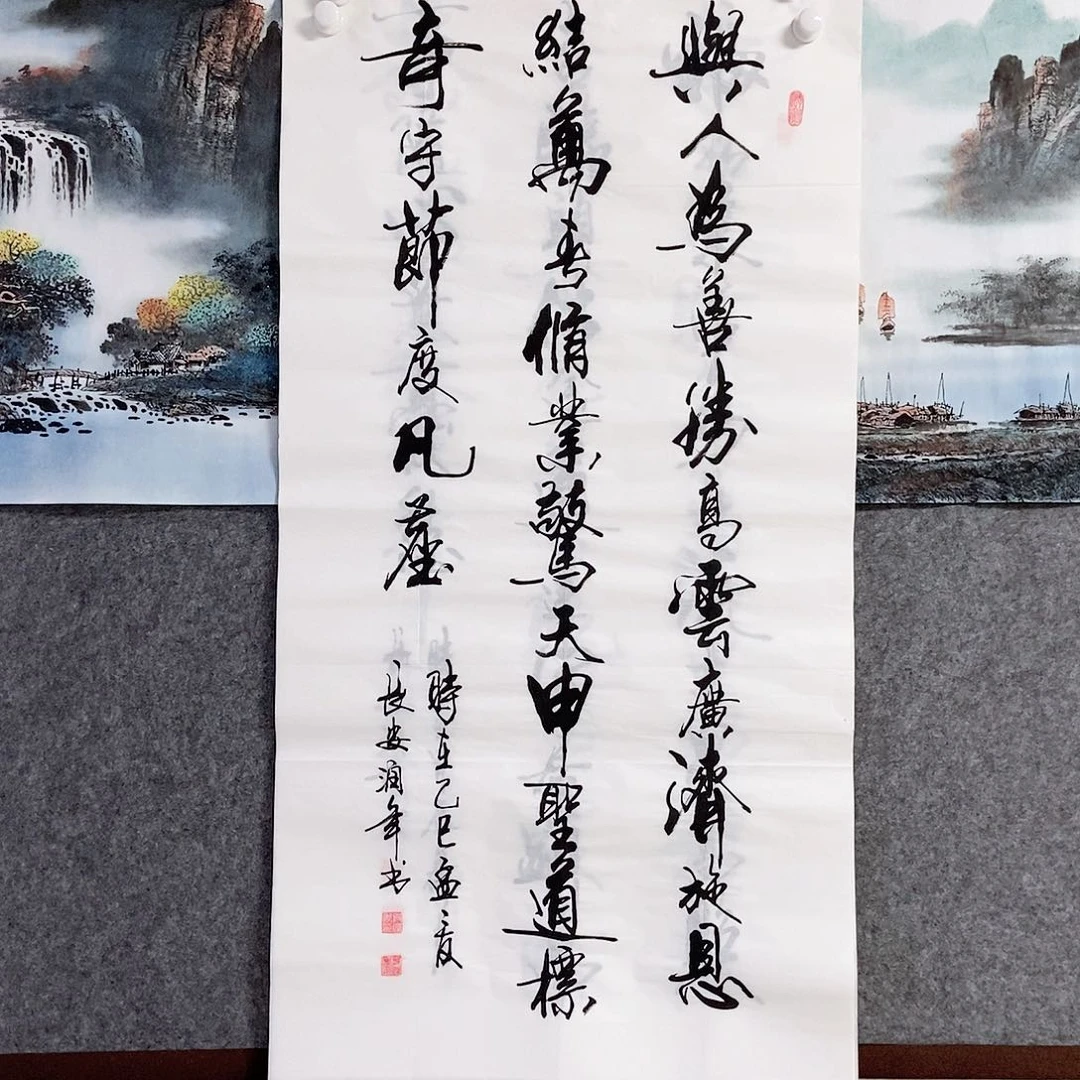 與人為善勝高雲廣濟施恩
結萬春脩業驚天申聖道標
奇守節度凡塵
時在乙巳孟夏
長安潤年书